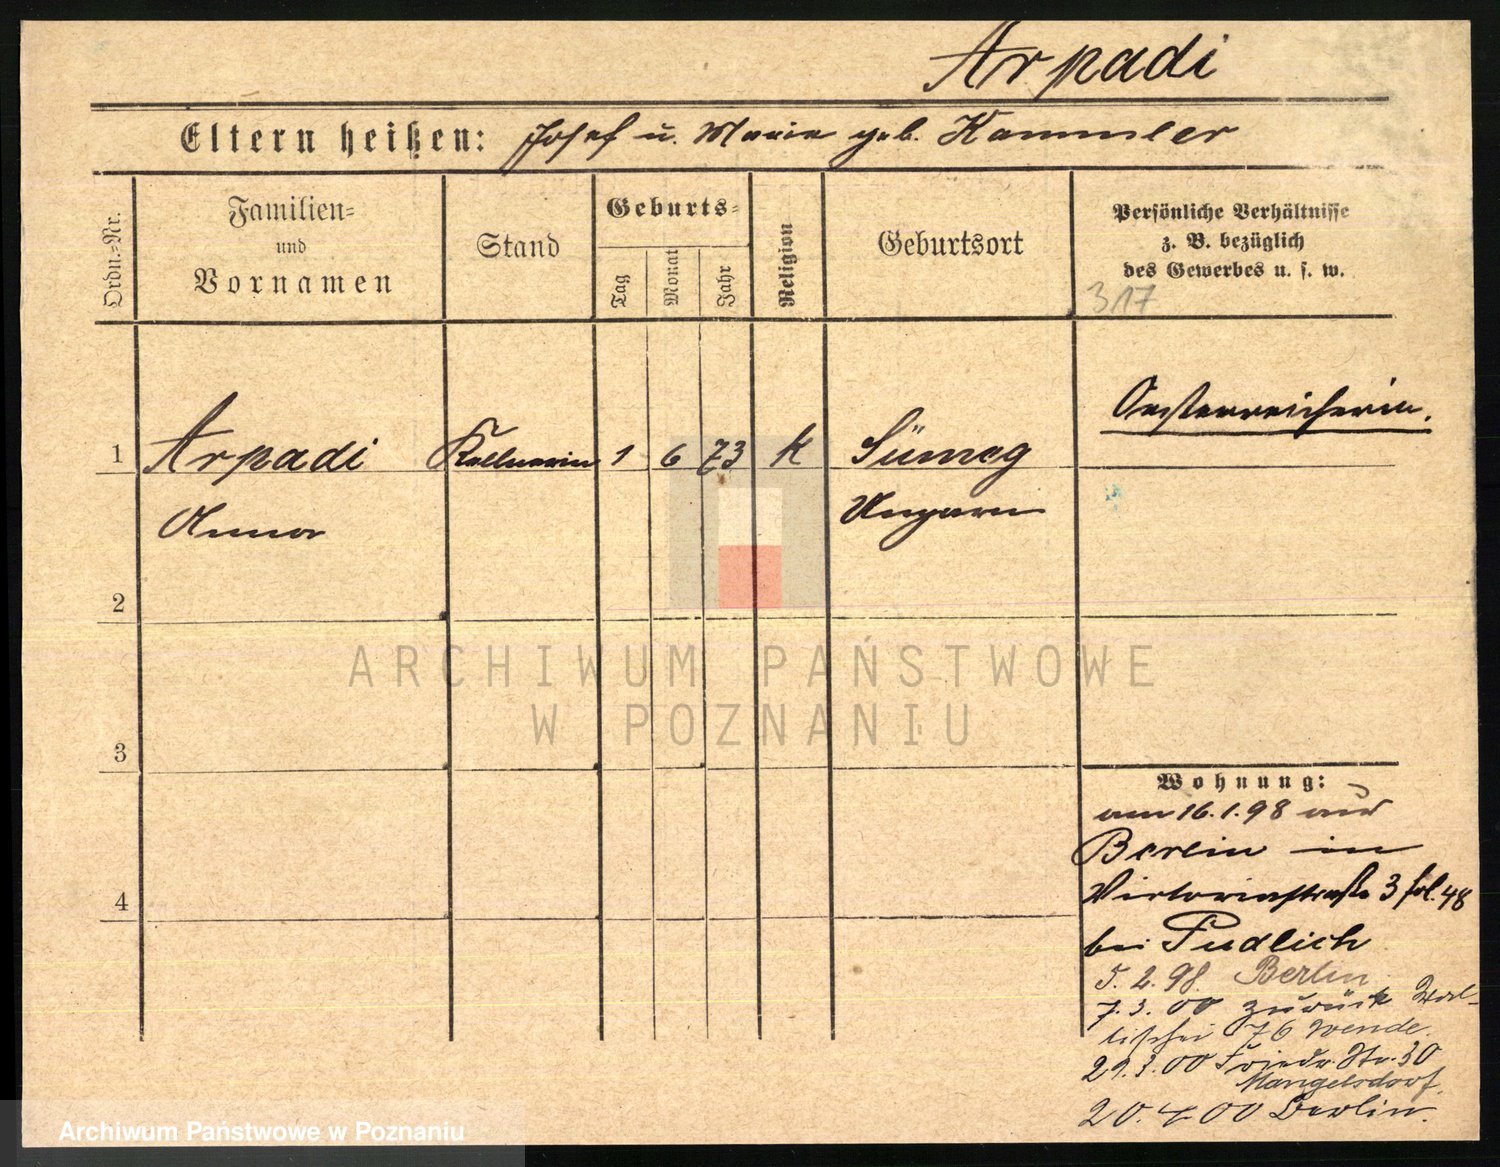 Arpadi
Eltern heißen: Josef u. Marie geb. Kammler
Ordn.-Nr.
Familien-
und
Vornamen
Stand
Geburts-
Tag
Monat
Jahr
Religion
Geburtsort
Persönliche Verhältnisse
z. B. bezüglich
des Gewerbes u. s. w.
317
Oesterreicherin.
1 Arpadi Kellnerin 1 6 73 k Sümeg
Anna Ungarn
2
3
4
Wohnung:
am 16.1.98 aus
Berlin in
Victoriastraße 3 fol. 48
bei Pudlich
5.2.98. Berlin
7.3.00 zurück
76 Wende.
29.3.00 Friedr. Str. 30
Mangelsdorf.
20.4.00 Berlin.
ARCHIWUM PAŃSTWOWE
W POZNANIU
Archiwum Państwowe w Poznaniu